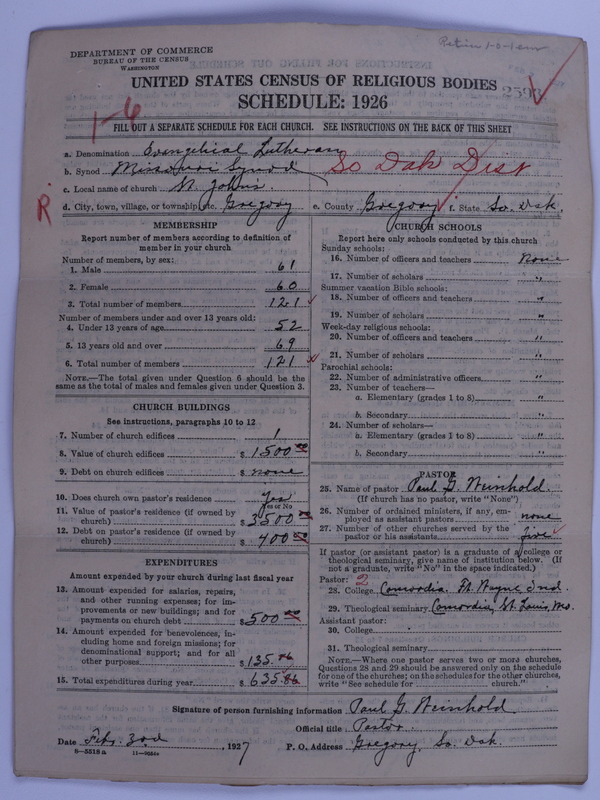 DEPARTMENT OF COMMERCE
BUREAU OF THE CENSUS
WASHINGTON
UNITED STATES CENSUS OF RELIGIOUS BODIES
SCHEDULE: 1926
1-6
FILL OUT A SEPARATE SCHEDULE FOR EACH CHURCH. SEE INSTRUCTIONS ON THE BACK OF THIS SHEET
a. Denomination Evangelical Lutheran
b. Synod Missouri Synod So Dak Dist
c. Local name of church St. Johns.
R.
d. City, town, village, or township, etc. Gregory e. County Gregory f. State So. Dak.
MEMBERSHIP
Report number of members according to definition of member in your church
Number of members, by sex:
1. Male 61
2. Female 60
3. Total number of members 121
Number of members under and over 13 years old:
4. Under 13 years of age 52
5. 13 years old and over 69
6. Total number of members 121
NOTE.—The total given under Question 6 should be
same as the total of males and females given under Question 3.
CHURCH BUILDINGS
See instructions, paragraphs 10 to 12
7. Number of church edifices 1
8. Value of church edifices $ 1500 00
9. Debt on church edifices $ none
10. Does church own pastor's residence Yes
Yes or No
11. Value of pastor's residence (if owned by
church) $ 3500 00
12. Debt on pastor's residence (if owned by
church) $ 400 00
EXPENDITURES
Amount expended by your church during last fiscal year
13. Amount expended for salaries, repairs,
and other running expenses; for im-
provements or new buildings; and for
payments on church debt $ 500 00
14. Amount expended for benevolences, in-
cluding home and foreign missions; for
denominational support; and for all
other purposes $ 135.86
15. Total expenditures during year $ 635.86
CHURCH SCHOOLS
Report here only schools conducted by this church
Sunday schools:
16. Number of officers and teachers none
17. Number of scholars "
Summer vacation Bible schools:
18. Number of officers and teachers "
19. Number of scholars "
Week-day religious schools:
20. Number of officers and teachers "
21. Number of scholars "
Parochial schools:
22. Number of administrative officers "
23. Number of teachers—
a. Elementary (grades 1 to 8) "
b. Secondary "
24. Number of scholars—
a. Elementary (grades 1 to 8) "
b. Secondary "
PASTOR
25. Name of pastor Paul G. Weinhold.
(If church has no pastor, write "None")
26. Number of ordained ministers, if any, em-
ployed as assistant pastors none
27. Number of other churches served by the
pastor or his assistants five
If pastor (or assistant pastor) is a graduate of a college or
theological seminary, give name of institution below. (If
not a graduate, write "No" in the space indicated.)
Pastor: 2
28. College Concordia. Ft. Wayne, Ind.
29. Theological seminary Concordia, St. Louis, Mo.
Assistant pastor:
30. College
31. Theological seminary
NOTE.—Where one pastor serves two or more churches,
Questions 28 and 29 should be answered only on the schedule
for one of the churches; on the schedules for the other churches,
write "See schedule for church."
Signature of person furnishing information Paul G. Weinhold
Official title Pastor.
Date Feb. 3rd, 1927 P. O. Address Gregory, So. Dak.
8-5518 a